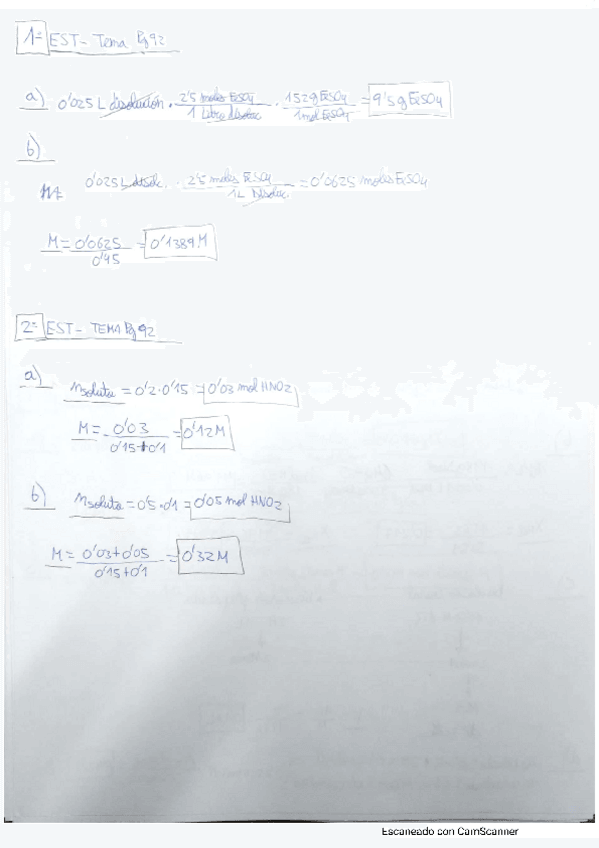 1º EST- Tema Pg 92
a) 0'025 L disolución · 2'5 moles FeSO4 / 1 Litro disoluc · 152 g FeSO4 / 1 mol FeSO4 = 9'5 g FeSO4
b)
0'025 L disolc. · 2'5 moles FeSO4 / 1L Disoluc. = 0'0625 moles FeSO4
M = 0'0625 / 0'45 = 0'1389 M
2º EST- TEMA Pg 92
a) nsoluto = 0'2 · 0'15 = 0'03 mol HNO2
M = 0'03 / 0'15+0'1 = 0'12 M
b) nsoluto = 0'5 · 0'1 = 0'05 mol HNO2
M = 0'03+0'05 / 0'15+0'1 = 0'32 M
Escaneado con CamScanner